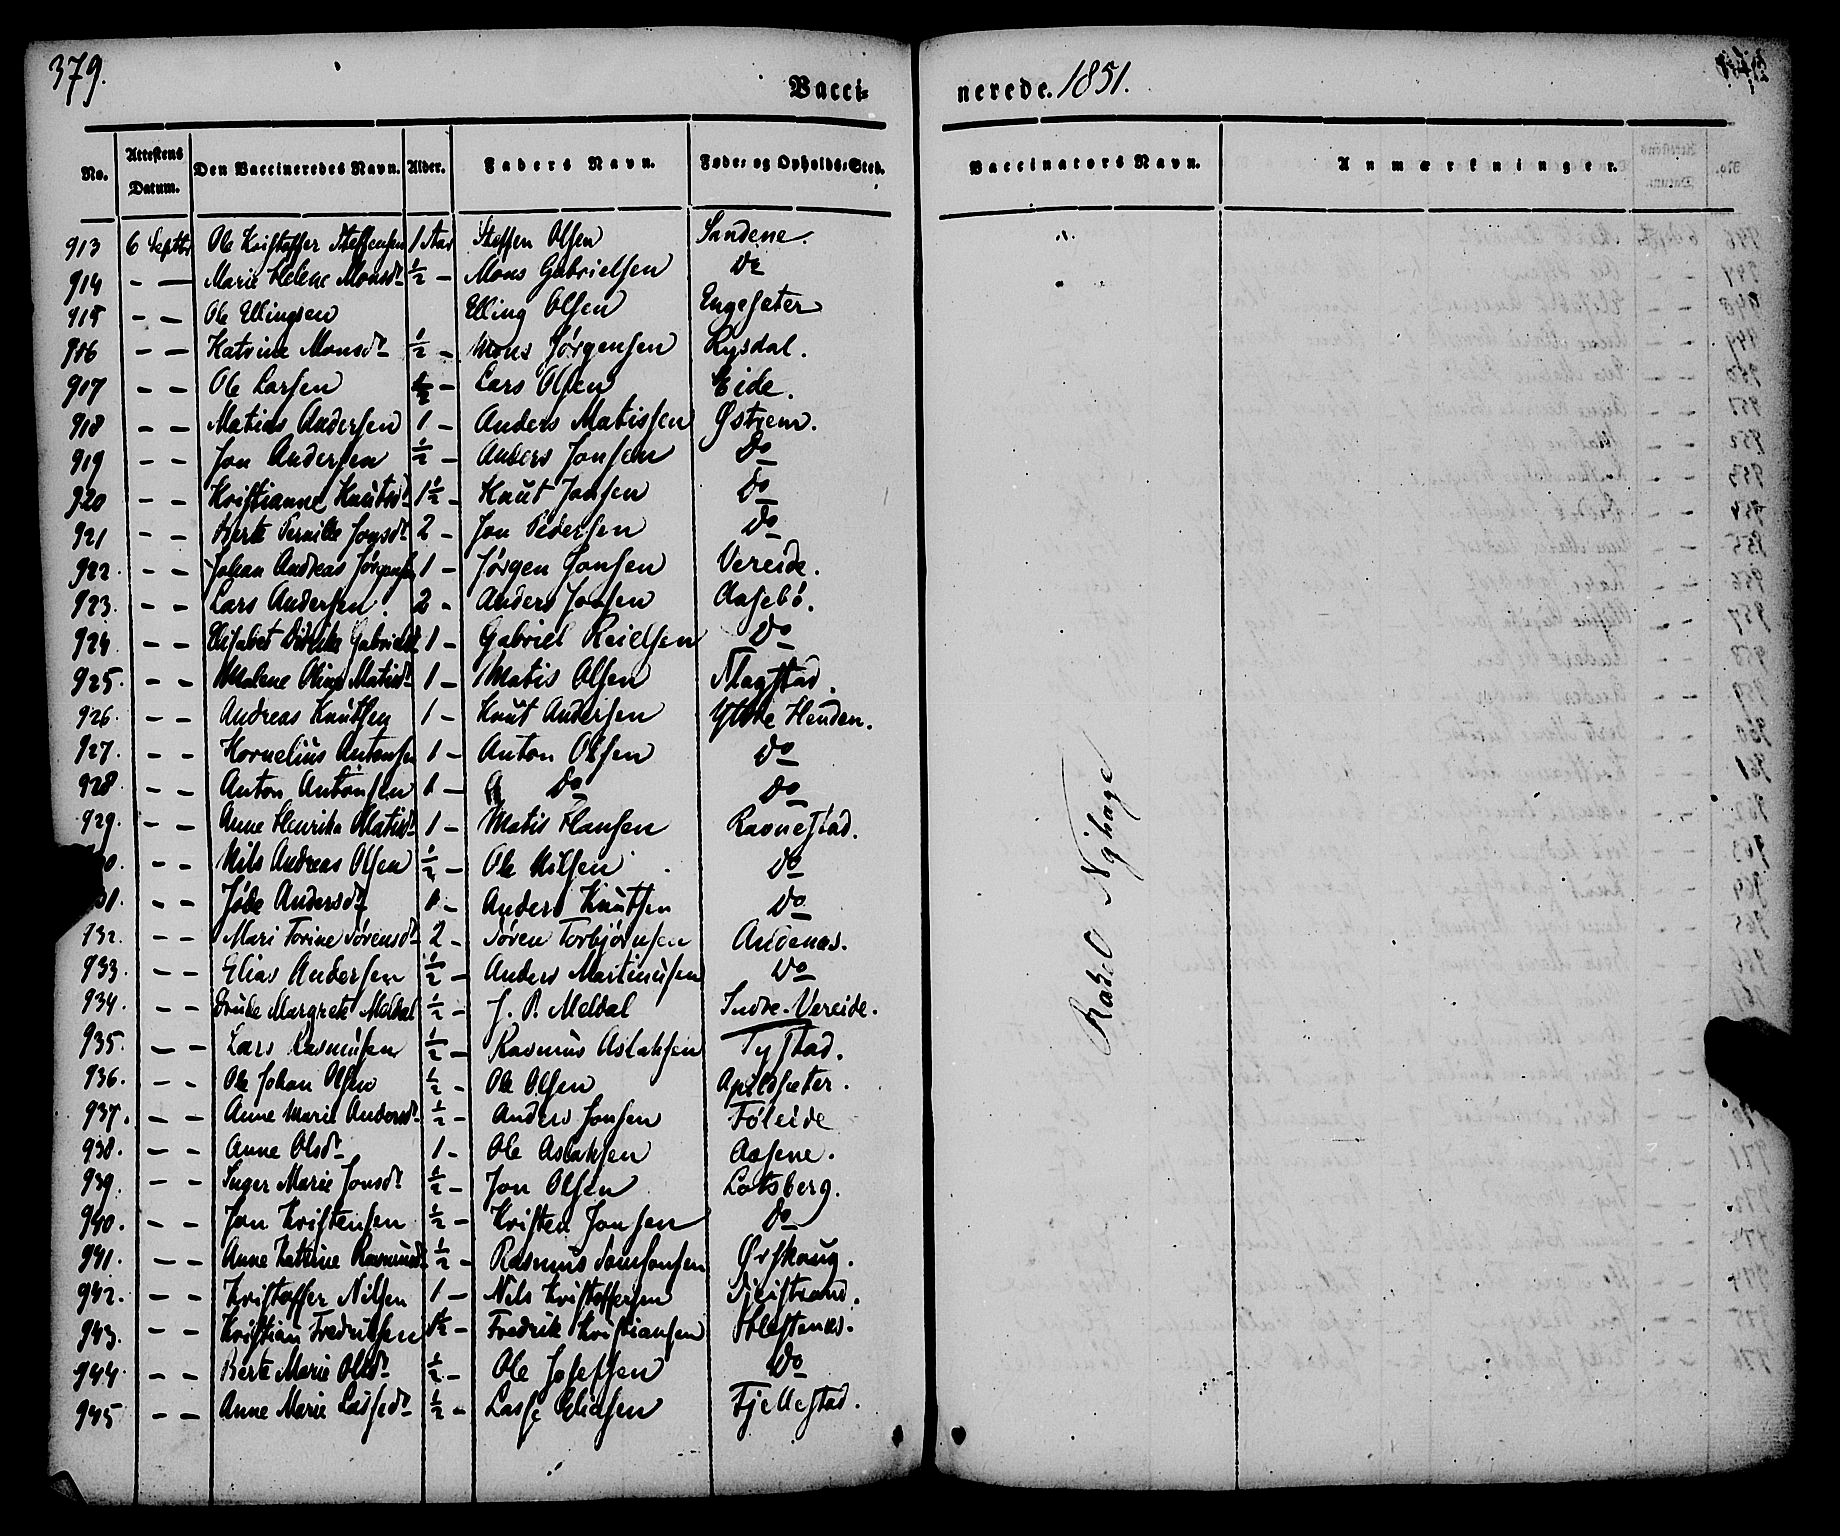 379.
Vacci- nerede. 1851.
No. Attestens Datum. Den Vaccineredes Navn. Alder. Faders Navn. Føde- og Opholds-Sted. Vaccinators Navn. Anmærkninger.
913 6 Septbr Ole Kristoffer Steffensen 1 Aar Steffen Olsen Sandene.
914 - - Marie Helene Monsdr ½ - Mons Gabrielsen Do
915 - - Ole Ellingsen Elling Olsen Engesæter
916 - - Katrine Monsdr ½ - Mons Jørgensen Rysdal.
917 - - Ole Larsen ½ - Lars Olsen Eide.
918 - - Matias Andersen 1 - Anders Matissen Østrem.
919 - - Jon Andersen ½ - Anders Jonsen Do
920 - - Kristianne Knutsdr 1½ - Knut Jonsen Do
921 - - Berte Pernille Jonsdr 2 - Jon Pedersen Do
922. - - Johan Andreas Jørgensen 1 - Jørgen Jonsen Vereide.
923. - - Lars Andersen. 2 - Anders Jonsen Aasebø.
924. - - Elisabet Didrika Gabrielsdr 1 - Gabriel Reielsen Do
925. - - Malene Oline Matisdr 1 - Matis Olsen Flagstad.
926. - - Andreas Knutsen 1 - Knut Andersen Ytre Henden.
927. - - Kornelius Antonsen 1 - Anton Olsen Do
928. - - Anton Antonsen 1 - Do Do
929. - - Anne Henrika Matisdr 1 - Matis Hansen Ravnestad.
0. - - Nils Andreas Olsen ½ - Ole Nilsen Do
31. - - Jøde Andersdr 1 - Anders Knutsen Do
932. - - Mari Torine Sørensdr 2 - Søren Torbjørnsen Andenæs.
933. - - Elias Andersen ½ - Anders Martinusen Do
934. - - Drude Margrete Meldal ½ - J. P. Meldal Indre-Vereide.
935. - - Lars Rasmusen ½ - Rasmus Aslaksen Tystad.
936. - - Ole Johan Olsen ½ - Ole Olsen Apildsæter.
937. - - Anne Marie Andersdr ½ - Anders Jonsen Føleide
938. - - Anne Olsdr 1 - Ole Aslaksen Aasene.
939. - - Inger Marie Jonsdr ½ - Jon Olsen Lotsberg.
940. - - Jon Kristensen ½ - Kristen Jonsen Do
941. - - Anne Katrine Rasmusdr ½ - Rasmus Samsonsen Ørskoug.
942. - - Kristoffer Nilsen 1 - Nils Kristoffersen
943. - - Kristian Fredriksen 1½ - Fredrik Kristiansen Holstenæs.
944. - - Berte Marie Olsdr ½ - Ole Josefsen Do
945 - - Anne Marie Lassedr ½ - Lasse Eliasen Fjellestad.
Rakel Nyhage